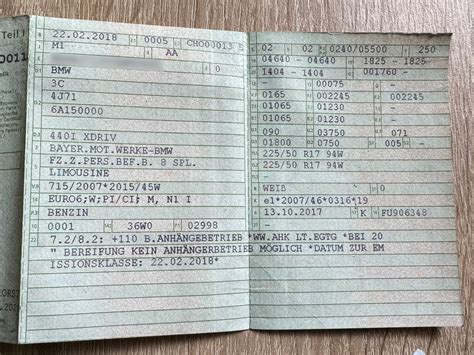 Teil I
22.02.2018 0005 CHO00013
M1 AA
BMW
3C
4J71
6A150000
440I XDRIV
BAYER.MOT.WERKE-BMW
FZ.Z.PERS.BEF.B. 8 SPL.
LIMOUSINE
715/2007*2015/45W
EURO6;W;PI/CI; M, N1 I
BENZIN
10 0001 36W0 02998
7.2/8.2: +110 B.ANHÄNGEBETRIEB *WW.AHK LT.EGTG *BEI 20
" BEREIFUNG KEIN ANHÄNGERBETRIEB MÖGLICH *DATUM ZUR EM
ISSIONSKLASSE: 22.02.2018*
02 02 0240/05500 250
04640 - 04640 1825 - 1825
1404 - 1404 001760 -
00075 -
0165 002245 002245
01065 01230 -
01065 01230 -
090 03750 071
01800 0750 005 -
225/50 R17 94W
225/50 R17 94W
WEIß
e1*2007/46*0316*19
13.10.2017 K FU906348